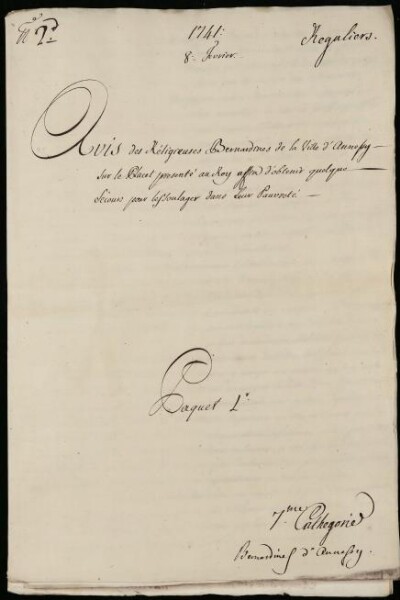 N.º 2.º
1741.
8.e Fevrier.
Regaliers.
Avis des Réligieuses Bernardines de la Ville d'Annessy
sur le Placet presenté au Roy affin d'obtenir quelque
sécours pour les soulager dans leur Pauvreté
Paquet 1.º
7.me Cathegorie
Bernardines d'Annessy.